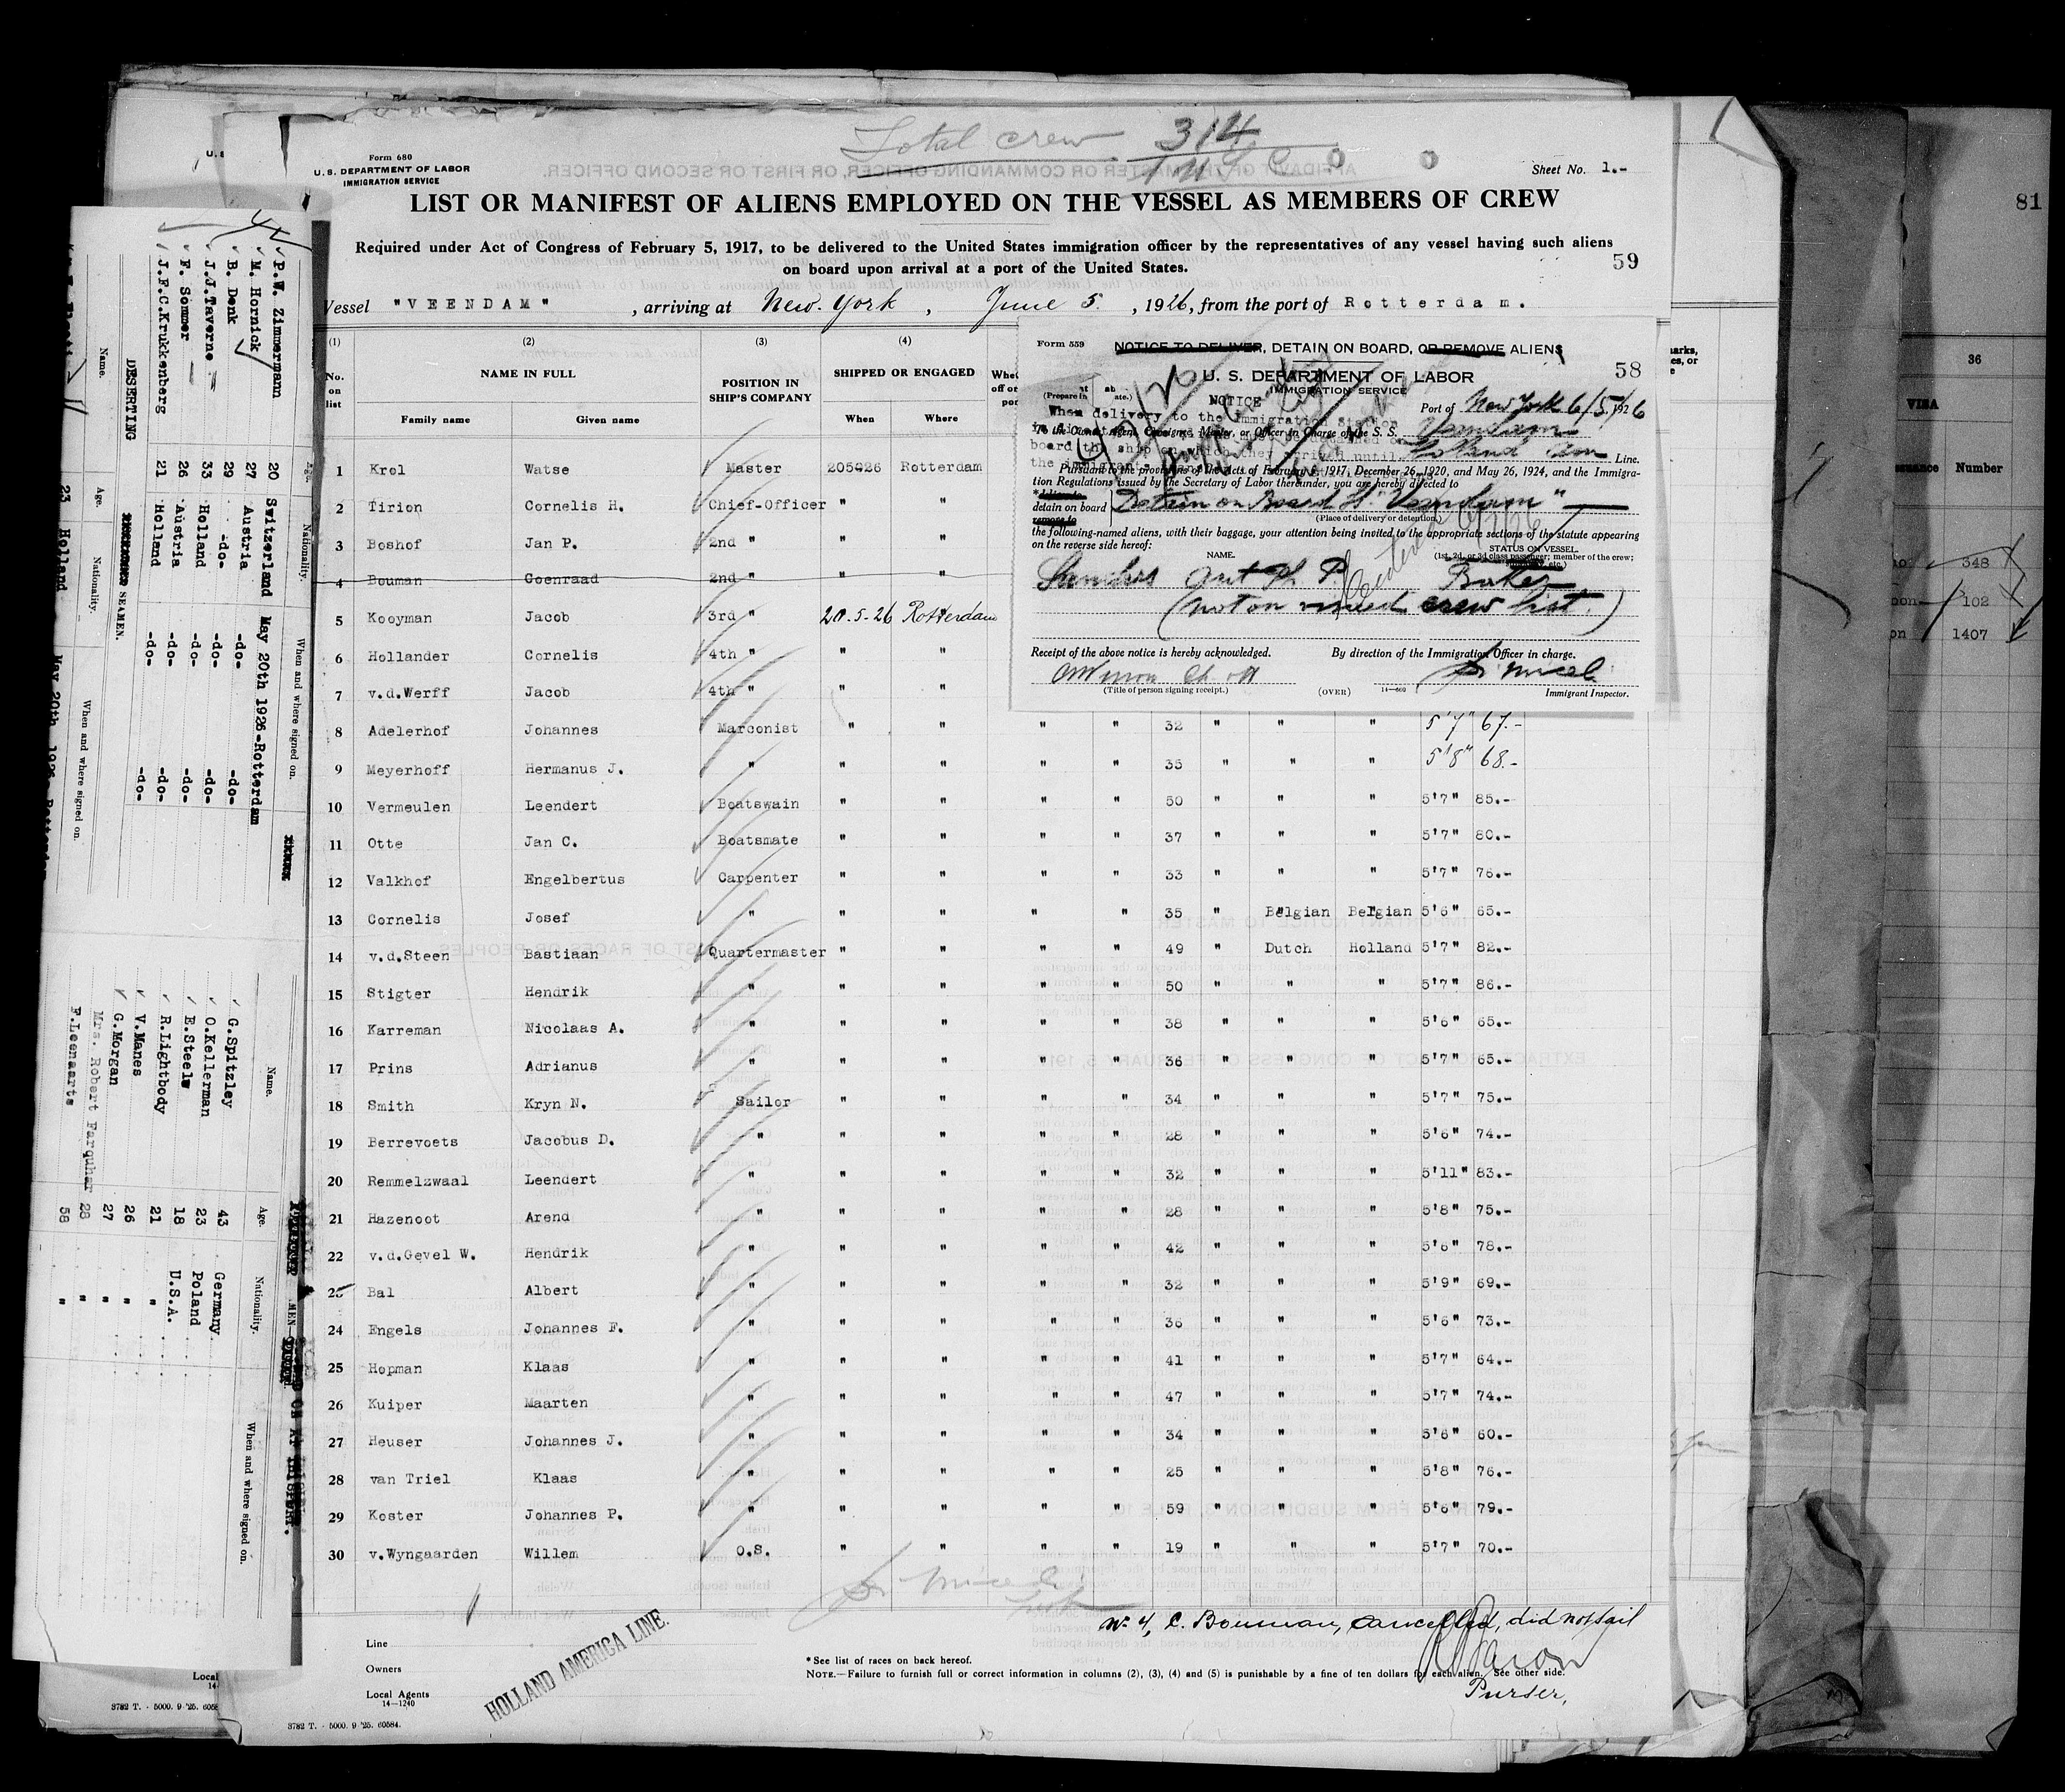 Total crew 314
Form 680
U. S. DEPARTMENT OF LABOR
IMMIGRATION SERVICE
Sheet No. 1.-
LIST OR MANIFEST OF ALIENS EMPLOYED ON THE VESSEL AS MEMBERS OF CREW
Required under Act of Congress of February 5, 1917, to be delivered to the United States immigration officer by the representatives of any vessel having such aliens
on board upon arrival at a port of the United States.
59
Vessel "VEENDAM", arriving at New York, June 5, 1926, from the port of Rotterdam.
(1) (2) (3) (4)
No. on list NAME IN FULL POSITION IN SHIP'S COMPANY SHIPPED OR ENGAGED
Family name Given name When Where
1 Krol Watse Master 205926 Rotterdam
2 Tirion Cornelis H. Chief-Officer " "
3 Boshof Jan P. 2nd " " "
4 Bouman Coenraad 2nd " " "
5 Kooyman Jacob 3rd " 20.5-26 Rotterdam
6 Hollander Cornelis 4th " " "
7 v.d.Werff Jacob 4th " " "
8 Adelerhof Johannes Marconist " " " " 32 " " " 5'7" 67.-
9 Meyerhoff Hermanus J. " " " " " 35 " " " 5'8" 68.-
10 Vermeulen Leendert Boatswain " " " " 50 " " " 5'7" 85.-
11 Otte Jan C. Boatsmate " " " " 37 " " " 5'7" 80.-
12 Valkhof Engelbertus Carpenter " " " " 33 " " " 5'7" 76.-
13 Cornelis Josef " " " " " 35 " Belgian Belgian 5'6" 65.-
14 v.d.Steen Bastiaan Quartermaster " " " " 49 " Dutch Holland 5'7" 82.-
15 Stigter Hendrik " " " " " 50 " " " 5'7" 86.-
16 Karreman Nicolaas A. " " " " " 38 " " " 5'6" 65.-
17 Prins Adrianus " " " " " 36 " " " 5'7" 65.-
18 Smith Kryn N. Sailor " " " " 34 " " " 5'7" 75.-
19 Berrevoets Jacobus D. " " " " " 28 " " " 5'6" 74.-
20 Remmelzwaal Leendert " " " " " 32 " " " 5'11" 83.-
21 Hazenoot Arend " " " " " 28 " " " 5'8" 75.-
22 v.d.Gevel W. Hendrik " " " " " 42 " " " 5'6" 78.-
23 Bal Albert " " " " " 32 " " " 5'9" 69.-
24 Engels Johannes F. " " " " " 36 " " " 5'6" 73.-
25 Hopman Klaas " " " " " 41 " " " 5'7" 64.-
26 Kuiper Maarten " " " " " 47 " " " 5'7" 74.-
27 Heuser Johannes J. " " " " " 34 " " " 5'6" 60.-
28 van Triel Klaas " " " " " 25 " " " 5'8" 76.-
29 Koster Johannes P. " " " " " 59 " " " 5'6" 79.-
30 v.Wyngaarden Willem O.S. " " " " 19 " " " 5'7" 70.-
No 4, C. Bouman, cancelled, did not sail
Purser,
Line
Owners
Local Agents
14—1240
HOLLAND AMERICA LINE.
* See list of races on back hereof.
NOTE.—Failure to furnish full or correct information in columns (2), (3), (4) and (5) is punishable by a fine of ten dollars for each alien. See other side.
3782 T. - 5000. 9 '25. 60584.
Form 559
NOTICE TO DELIVER, DETAIN ON BOARD, OR REMOVE ALIENS
58
U. S. DEPARTMENT OF LABOR
IMMIGRATION SERVICE
NOTICE
Port of New York 6/5/1926
When delivery to the Immigration Station
To the Agent, Consignee, Master, or Officer in Charge of the S. S. Veendam
Holland Am Line.
Pursuant to the provisions of the Acts of February 5, 1917, December 26, 1920, and May 26, 1924, and the Immigra-
tion Regulations issued by the Secretary of Labor thereunder, you are hereby directed to
detain on board
remove to
Detain on Board "Veendam"
(Place of delivery or detention)
the following-named aliens, with their baggage, your attention being invited to the appropriate sections of the statute appearing
on the reverse side hereof:
NAME. STATUS ON VESSEL.
(1st, 2d, or 3d class passenger; member of the crew;
Baker
(not on visaed crew list.)
Receipt of the above notice is hereby acknowledged. By direction of the Immigration Officer in charge.
(Title of person signing receipt.) (OVER) 14—669 Immigrant Inspector.
P.W. Zimmermann 20 Switzerland May 20th 1926-Rotterdam
M. Hornick 27 Austria -do- -do-
B. Denk 29 -do- -do- -do-
J.J.Taverne 33 Holland -do- -do-
F. Sommer 26 Austria -do- -do-
J.F.C.Krukkenberg 21 Holland -do- -do-
DESERTING SEAMEN.
Name. Age. Nationality. When and where signed on.
23 Holland May 20th 1926
Name. Age. Nationality. When and where signed on.
G.Spitzley 43 Germany
O.Kellerman 23 Poland
E.Steele 18 U.S.A.
R.Lightbody 21 "
V.Manes 26 "
G.Morgan 27 "
Mrs. Robert Farquhar 28 "
F.Leenaarts 58 "
Local
3782 T. - 5000. 9 '25.
81
36
VISA
Number
348
102
1407